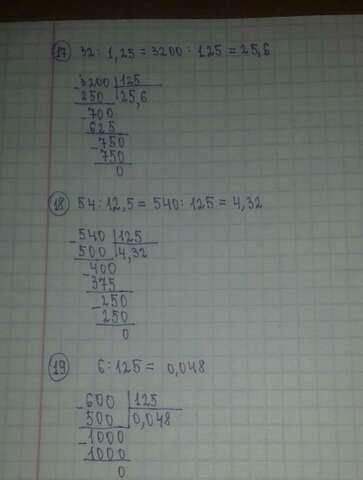 17 32 : 1,25 = 3200 : 125 = 25,6
- 3200 | 125
250 | 25,6
- 700
625
- 750
- 750
0
18 54 : 12,5 = 540 : 125 = 4,32
- 540 | 125
500 | 4,32
- 400
375
- 250
250
0
19 6 : 125 = 0,048
- 600 | 125
500 | 0,048
- 1000
1000
0